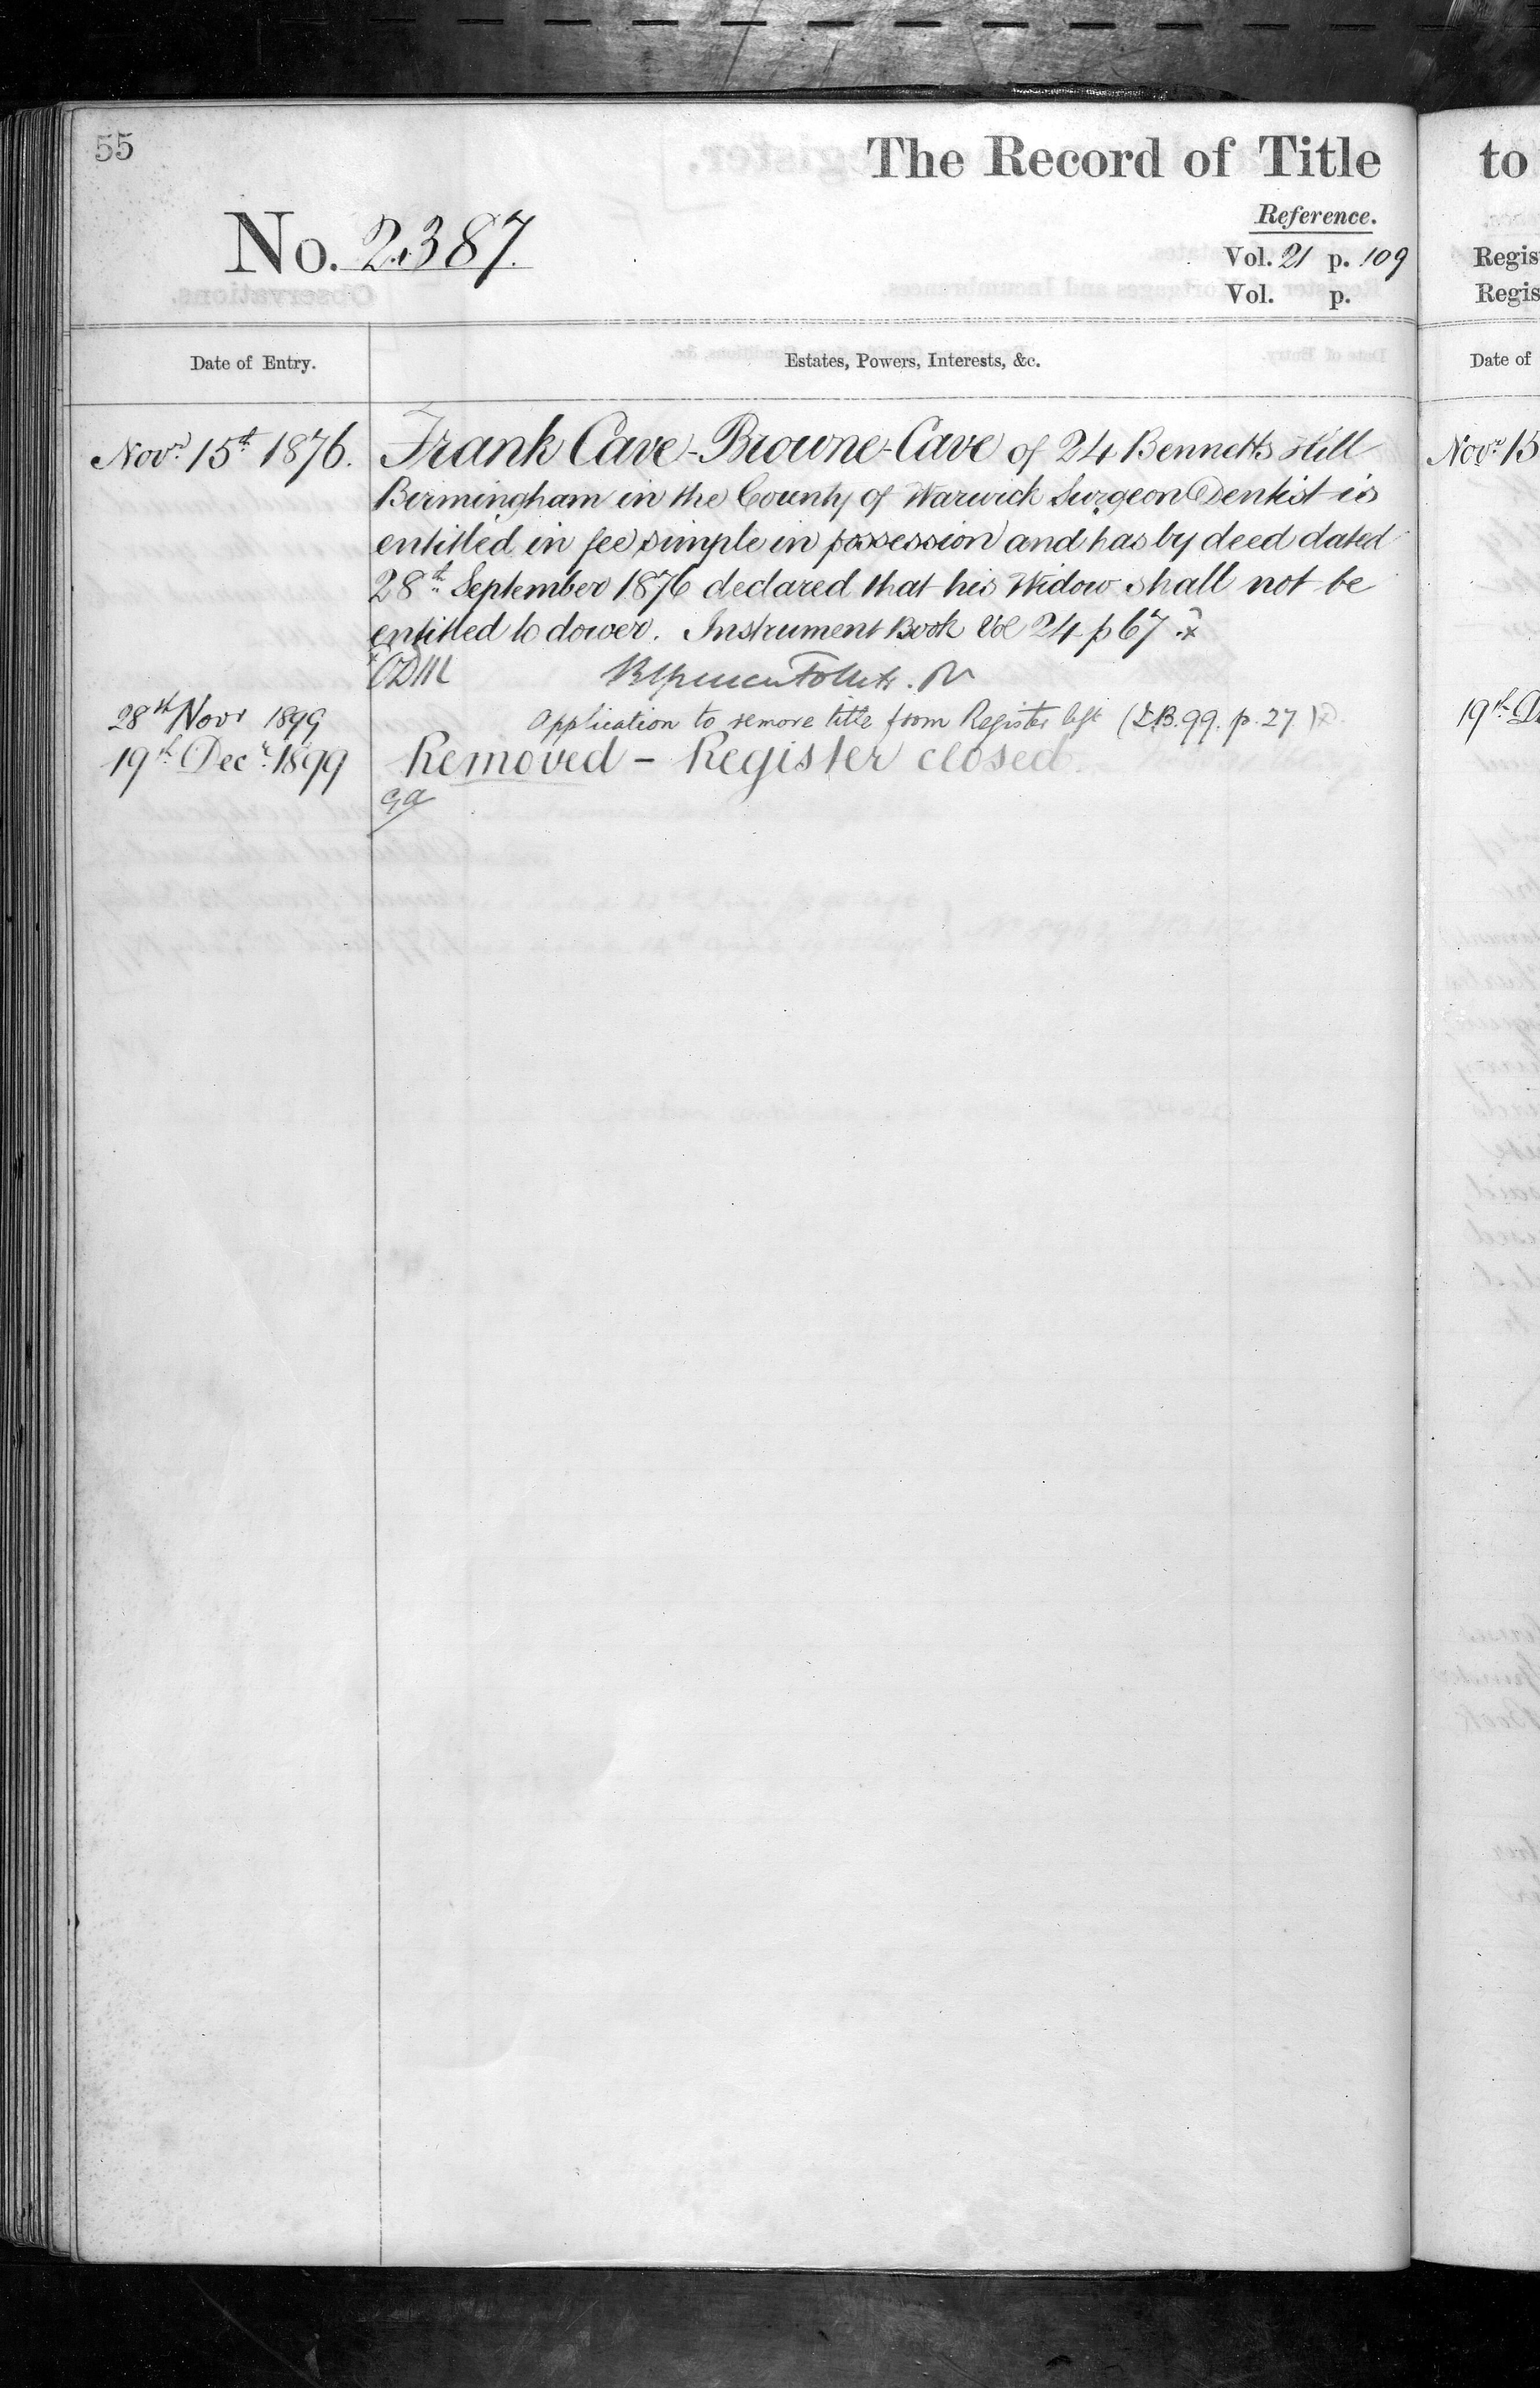 55
The Record of Title
to
No. 2387.
Reference.
Vol. 21 p. 109
Vol. p.
Regis
Regis
Date of Entry.
Estates, Powers, Interests, &c.
Date of
Novr 15th 1876.
Frank Cave-Browne-Cave of 24 Bennetts Hill
Birmingham in the County of Warwick Surgeon Dentist is
entitled in fee simple in possession and has by deed dated
28th September 1876 declared that his Widow shall not be
entitled to dower. Instrument Book Vol 24 p 67
Novr 15
28th Novr 1899
Application to remove title from Register left (I.B. 99. p. 27.)
19th Decr 1899
Removed - Register closed.
19th D